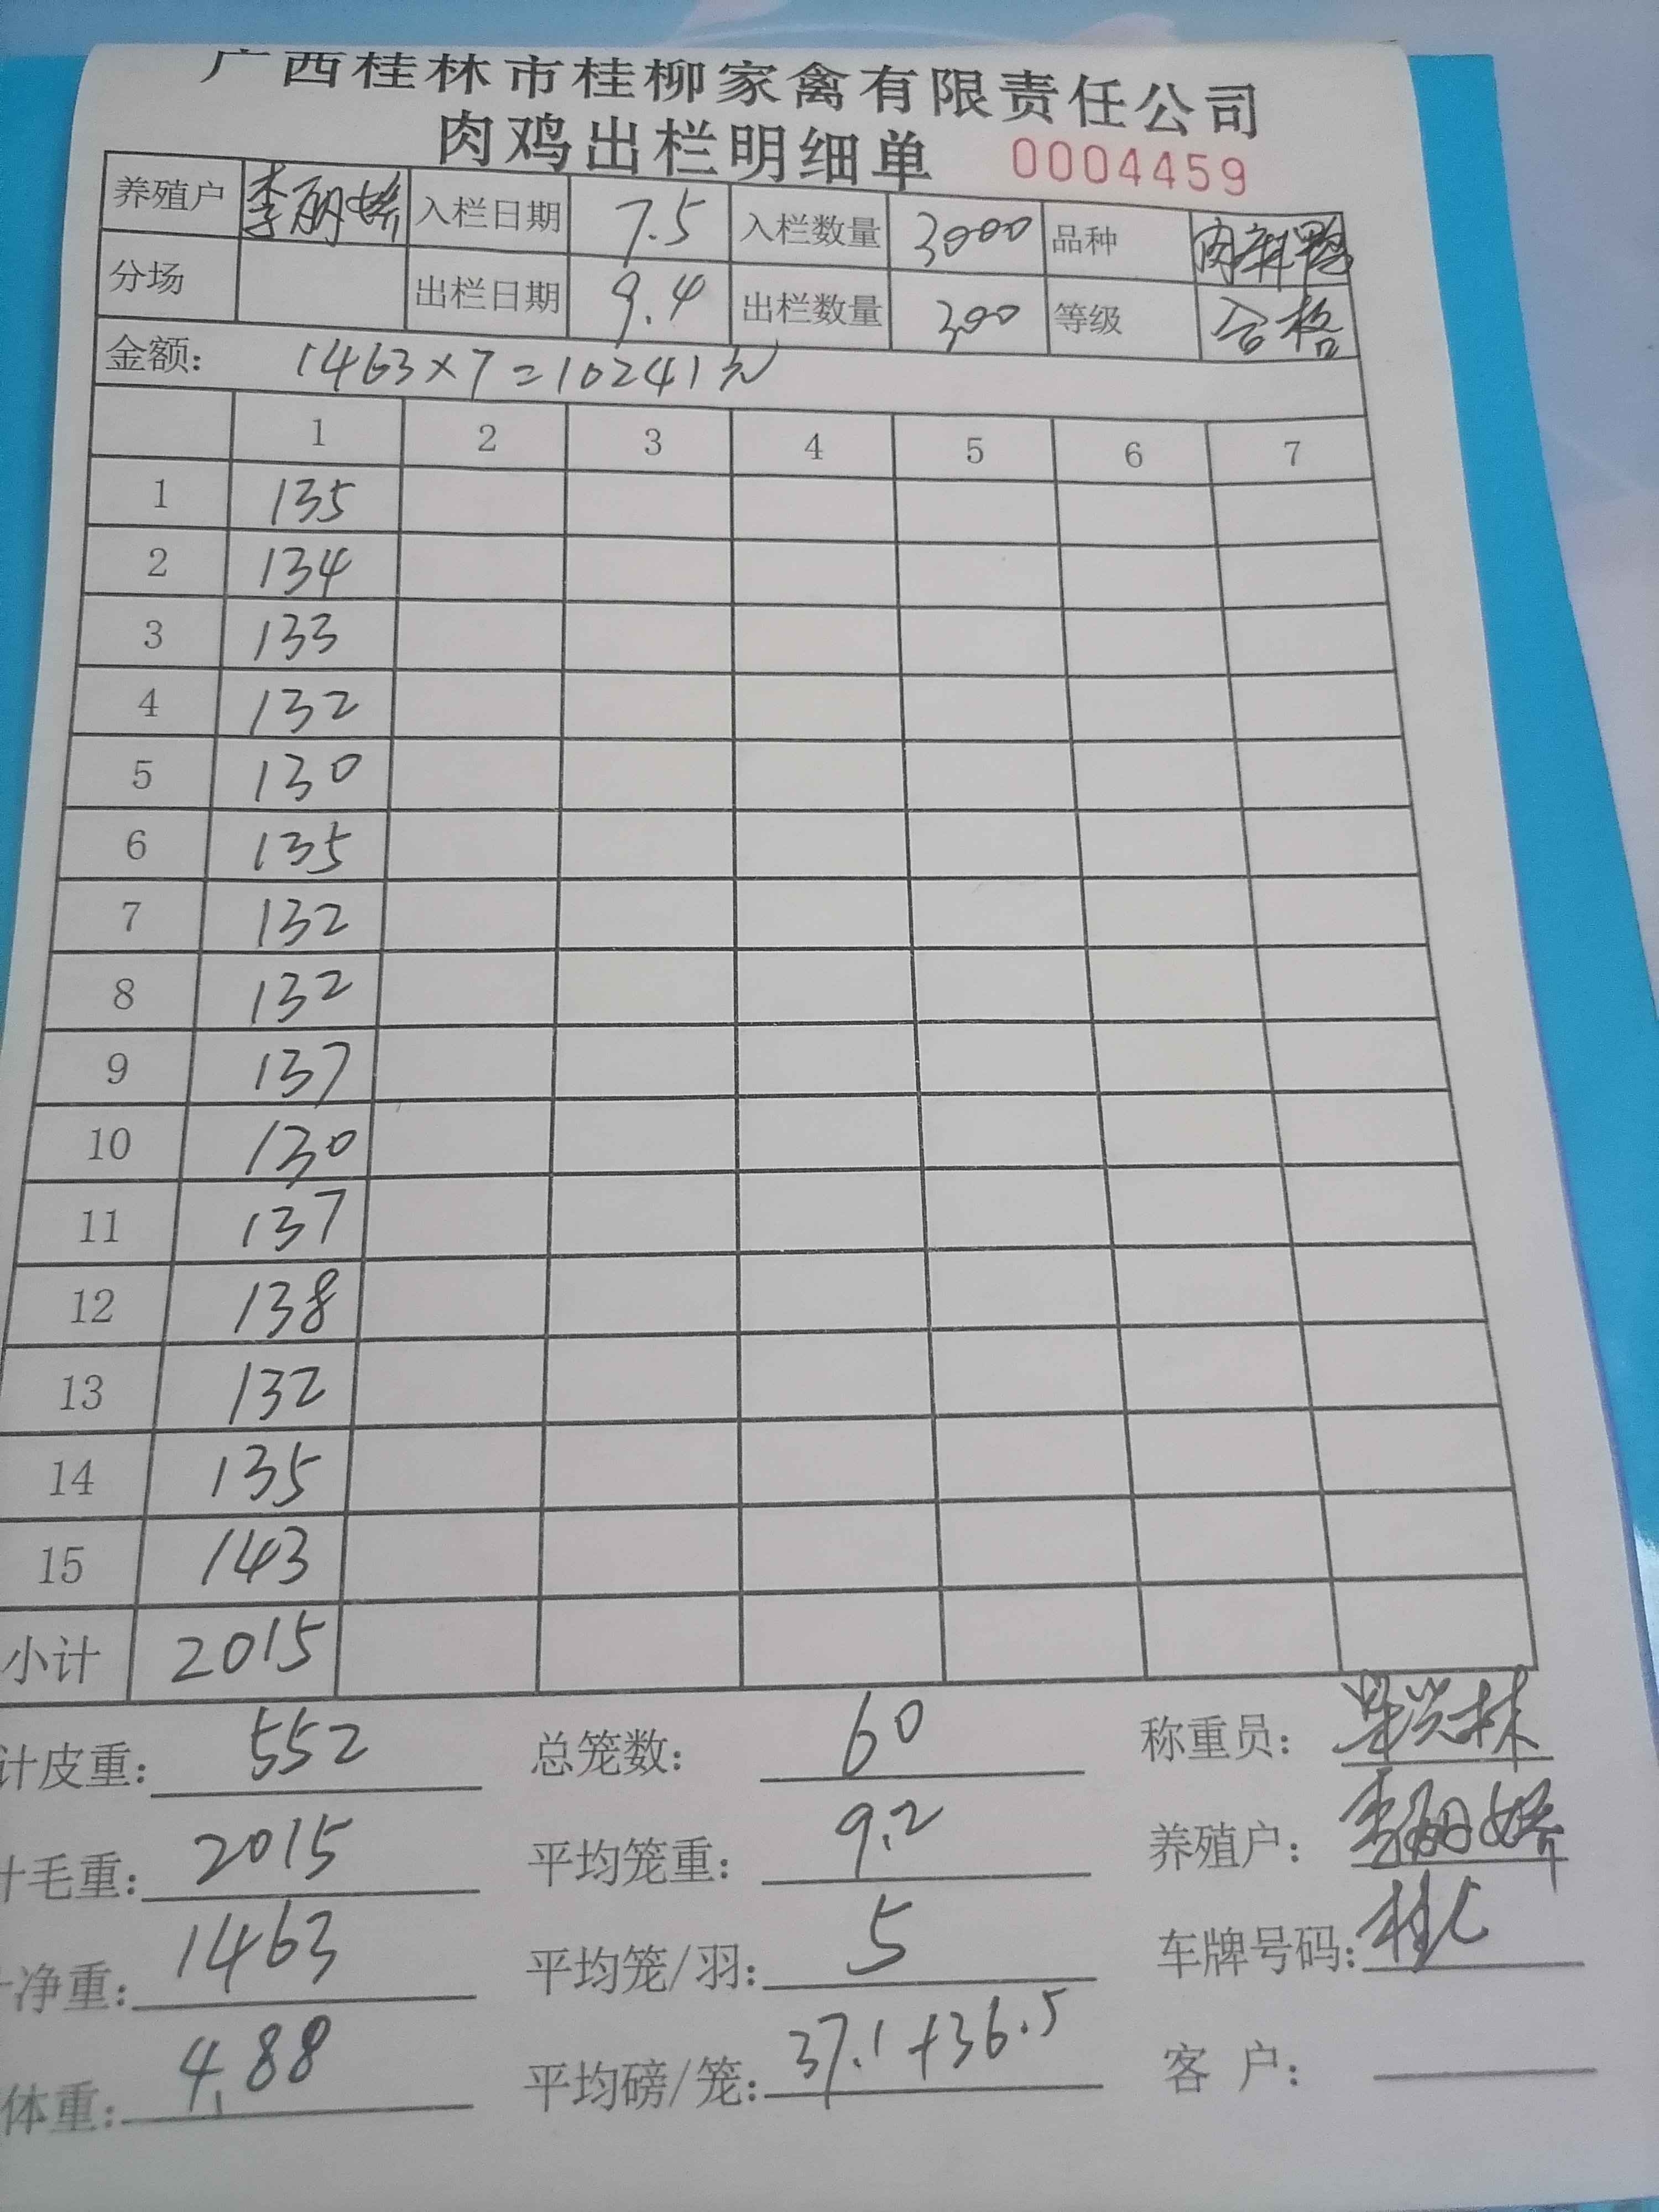 广西桂林市桂柳家禽有限责任公司
肉鸡出栏明细单 0004459
养殖户 李丽娇 入栏日期 7.5 入栏数量 3000 品种 肉鸭
分场 出栏日期 9.4 出栏数量 300 等级 合格
金额: 1463×7=10241元
1 2 3 4 5 6 7
1 135
2 134
3 133
4 132
5 130
6 135
7 132
8 132
9 137
10 130
11 137
12 138
13 132
14 135
15 143
小计 2015
计皮重: 552 总笼数: 60 称重员: 林
计毛重: 2015 平均笼重: 9.2 养殖户: 李丽娇
净重: 1463 平均笼/羽: 5 车牌号码: 桂C
体重: 4.88 平均磅/笼: 37.1+36.5 客 户: